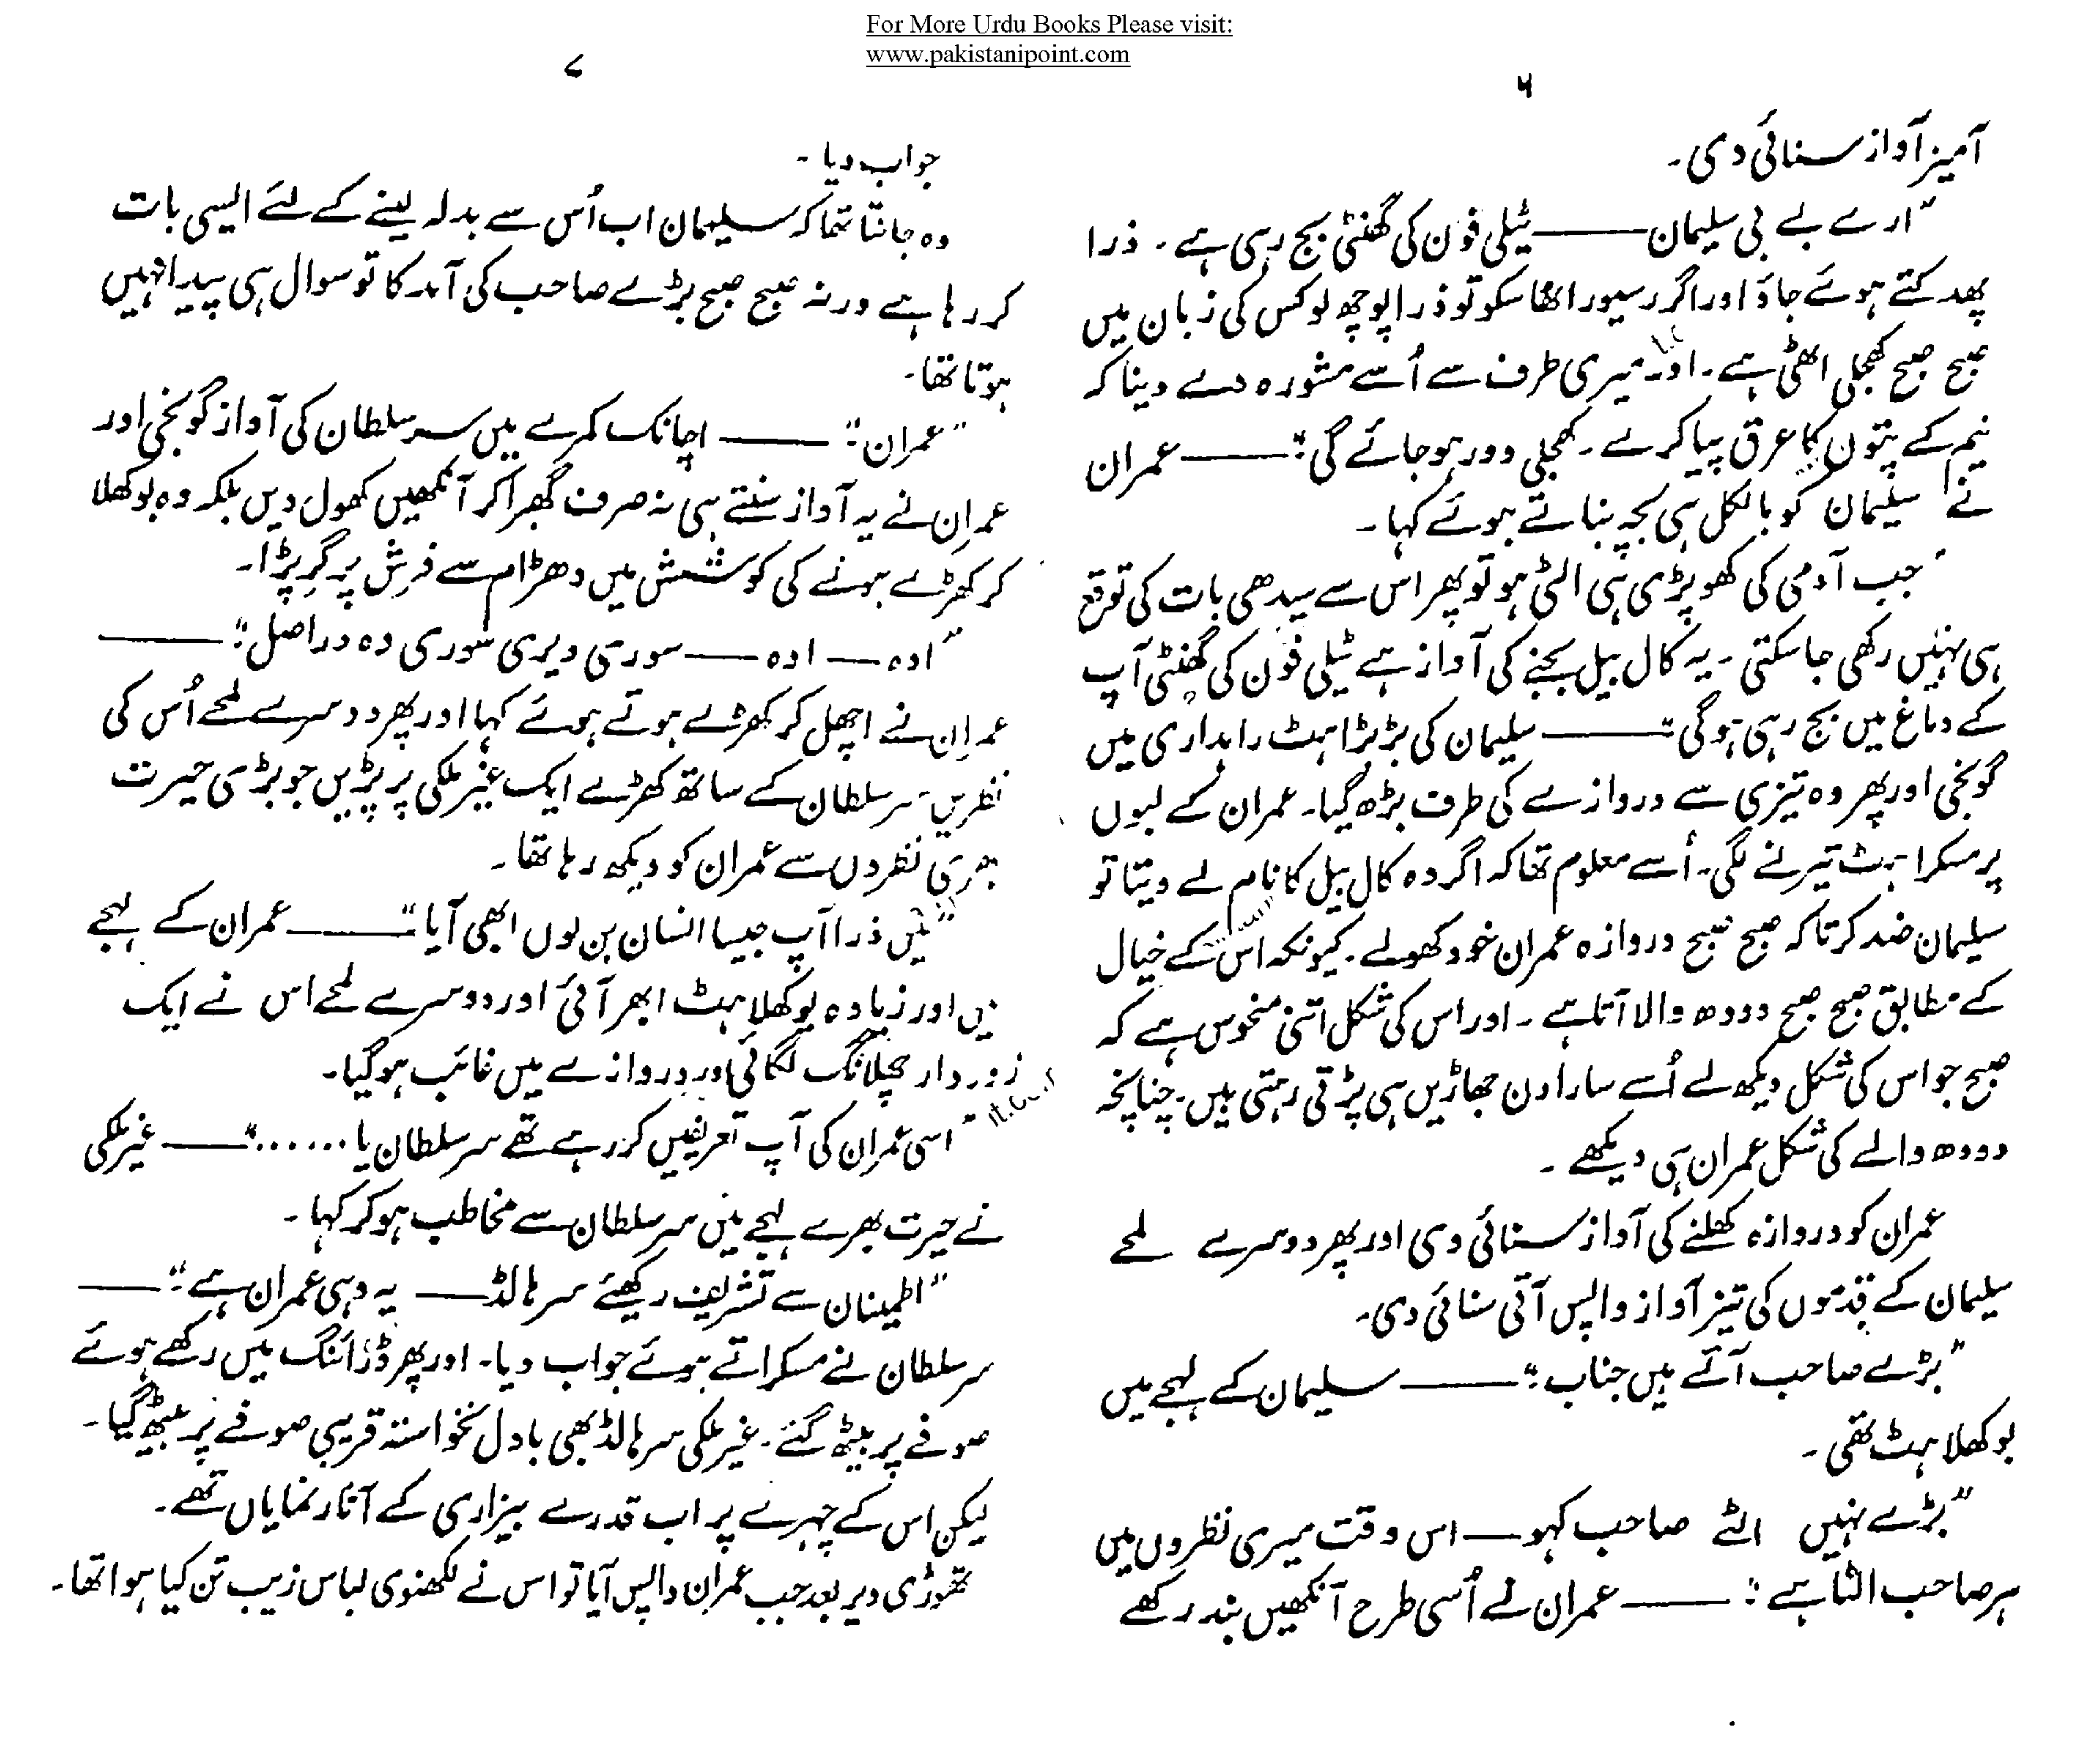 For More Urdu Books Please visit:
www.pakistanipoint.com
۶
آمیز آواز سنائی دی۔
"ارے بے بی سلیمان ——— ٹیلی فون کی گھنٹی بج رہی ہے۔ ذرا
پھدکتے ہوئے جاؤ اور اگر رسیور اٹھا سکو تو ذرا پوچھ لو کس کی زبان میں
صبح صبح کھجلی اٹھی ہے۔ اور میری طرف سے اُسے مشورہ دے دینا کہ
نیم کے پتوں کا عرق پیا کرے۔ کھجلی دور ہو جائے گی" ——— عمران
نے سلیمان کو بالکل ہی بچہ بناتے ہوئے کہا۔
"جب آدمی کی کھوپڑی ہی الٹی ہو تو پھر اس سے سیدھی بات کی توقع
ہی نہیں رکھی جا سکتی۔ یہ کال بیل بجنے کی آواز ہے ٹیلی فون کی گھنٹی آپ
کے دماغ میں بج رہی ہوگی" ——— سلیمان کی بڑبڑاہٹ راہداری میں
گونجی اور پھر وہ تیزی سے دروازے کی طرف بڑھ گیا۔ عمران کے لبوں
پر مسکراہٹ تیرنے لگی۔ اُسے معلوم تھا کہ اگر وہ کال بیل کا نام لے دیتا تو
سلیمان ضد کرتا کہ صبح صبح دروازہ عمران خود کھولے۔ کیونکہ اس کے خیال
کے مطابق صبح صبح دودھ والا آتا ہے۔ اور اس کی شکل اتنی منحوس ہے کہ
صبح جو اس کی شکل دیکھ لے اُسے سارا دن جھاڑیں ہی پڑتی رہتی ہیں۔ چنانچہ
دودھ والے کی شکل عمران ہی دیکھے۔
عمران کو دروازہ کھلنے کی آواز سنائی دی اور پھر دوسرے لمحے
سلیمان کے قدموں کی تیز آواز واپس آتی سنائی دی۔
"بڑے صاحب آئے ہیں جناب" ——— سلیمان کے لہجے میں
بوکھلاہٹ تھی۔
"بڑے نہیں الٹے صاحب کہو — اس وقت میری نظروں میں
ہر صاحب الٹا ہے" ——— عمران نے اُسی طرح آنکھیں بند رکھے
۷
جواب دیا۔
وہ جانتا تھا کہ سلیمان اب اُس سے بدلہ لینے کے لئے ایسی بات
کر رہا ہے ورنہ صبح صبح بڑے صاحب کی آمد کا تو سوال ہی پیدا نہیں
ہوتا تھا۔
"عمران" ——— اچانک کمرے میں سر سلطان کی آواز گونجی اور
عمران نے یہ آواز سنتے ہی نہ صرف گھبرا کر آنکھیں کھول دیں بلکہ وہ بوکھلا
کر کھڑے ہونے کی کوشش میں دھڑام سے فرش پر گر پڑا۔
"اوہ — اوہ — سوری ویری سوری وہ دراصل" ———
عمران نے اچھل کر کھڑے ہوتے ہوئے کہا اور پھر دوسرے لمحے اُس کی
نظریں سر سلطان کے ساتھ کھڑے ایک غیر ملکی پر پڑیں جو بڑی حیرت
بھری نظروں سے عمران کو دیکھ رہا تھا۔
"میں ذرا آپ جیسا انسان بن لوں ابھی آیا" ——— عمران کے لہجے
میں اور زیادہ بوکھلاہٹ ابھر آئی اور دوسرے لمحے اس نے ایک
زوردار چھلانگ لگائی اور دروازے میں غائب ہو گیا۔
"اسی عمران کی آپ تعریفیں کر رہے تھے سر سلطان یا......" ——— غیر ملکی
نے حیرت بھرے لہجے میں سر سلطان سے مخاطب ہو کر کہا۔
"اطمینان سے تشریف رکھیئے سر ہالڈ — یہ وہی عمران ہے" ———
سر سلطان نے مسکراتے ہوئے جواب دیا۔ اور پھر ڈرائنگ میں رکھے ہوئے
صوفے پر بیٹھ گئے۔ غیر ملکی سر ہالڈ بھی بادل نخواستہ قریبی صوفے پر بیٹھ گیا۔
لیکن اس کے چہرے پر اب قدرے بیزاری کے آثار نمایاں تھے۔
تھوڑی دیر بعد جب عمران واپس آیا تو اس نے لکھنوی لباس زیب تن کیا ہوا تھا۔